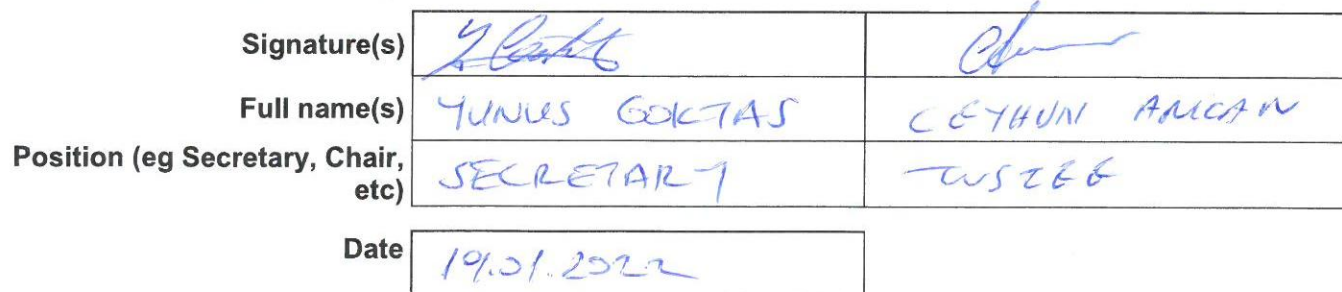 Signature(s)
Full name(s) YUNUS GOKTAS CEYHUN ARICAN
Position (eg Secretary, Chair,
etc) SECRETARY TUSTEE
Date 19.01.2022